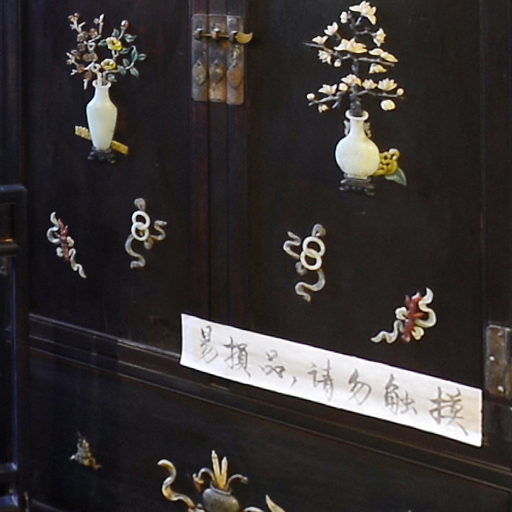 易損品,请勿触摸